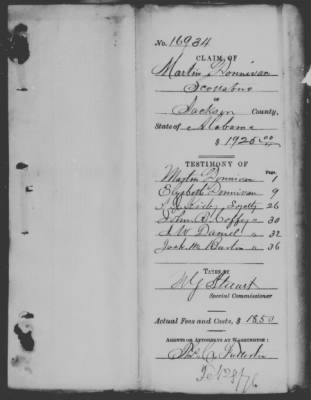 No. 16934
CLAIM OF
Martin Donnivan
Scottsboro
of
Jackson County,
State of Alabama
$ 1925.00
TESTIMONY OF
Page.
Martin Donnivan 1
Elizabeth Donnivan 9
Kirby Loyalty 26
John R. Coffey " 30
A W Daniel " 32
Jack " 36
TAKEN BY
W G Stewart
Special Commissioner
Actual Fees and Costs, $ 18.50
AGENTS OR ATTORNEYS AT WASHINGTON:
Feb 28/76